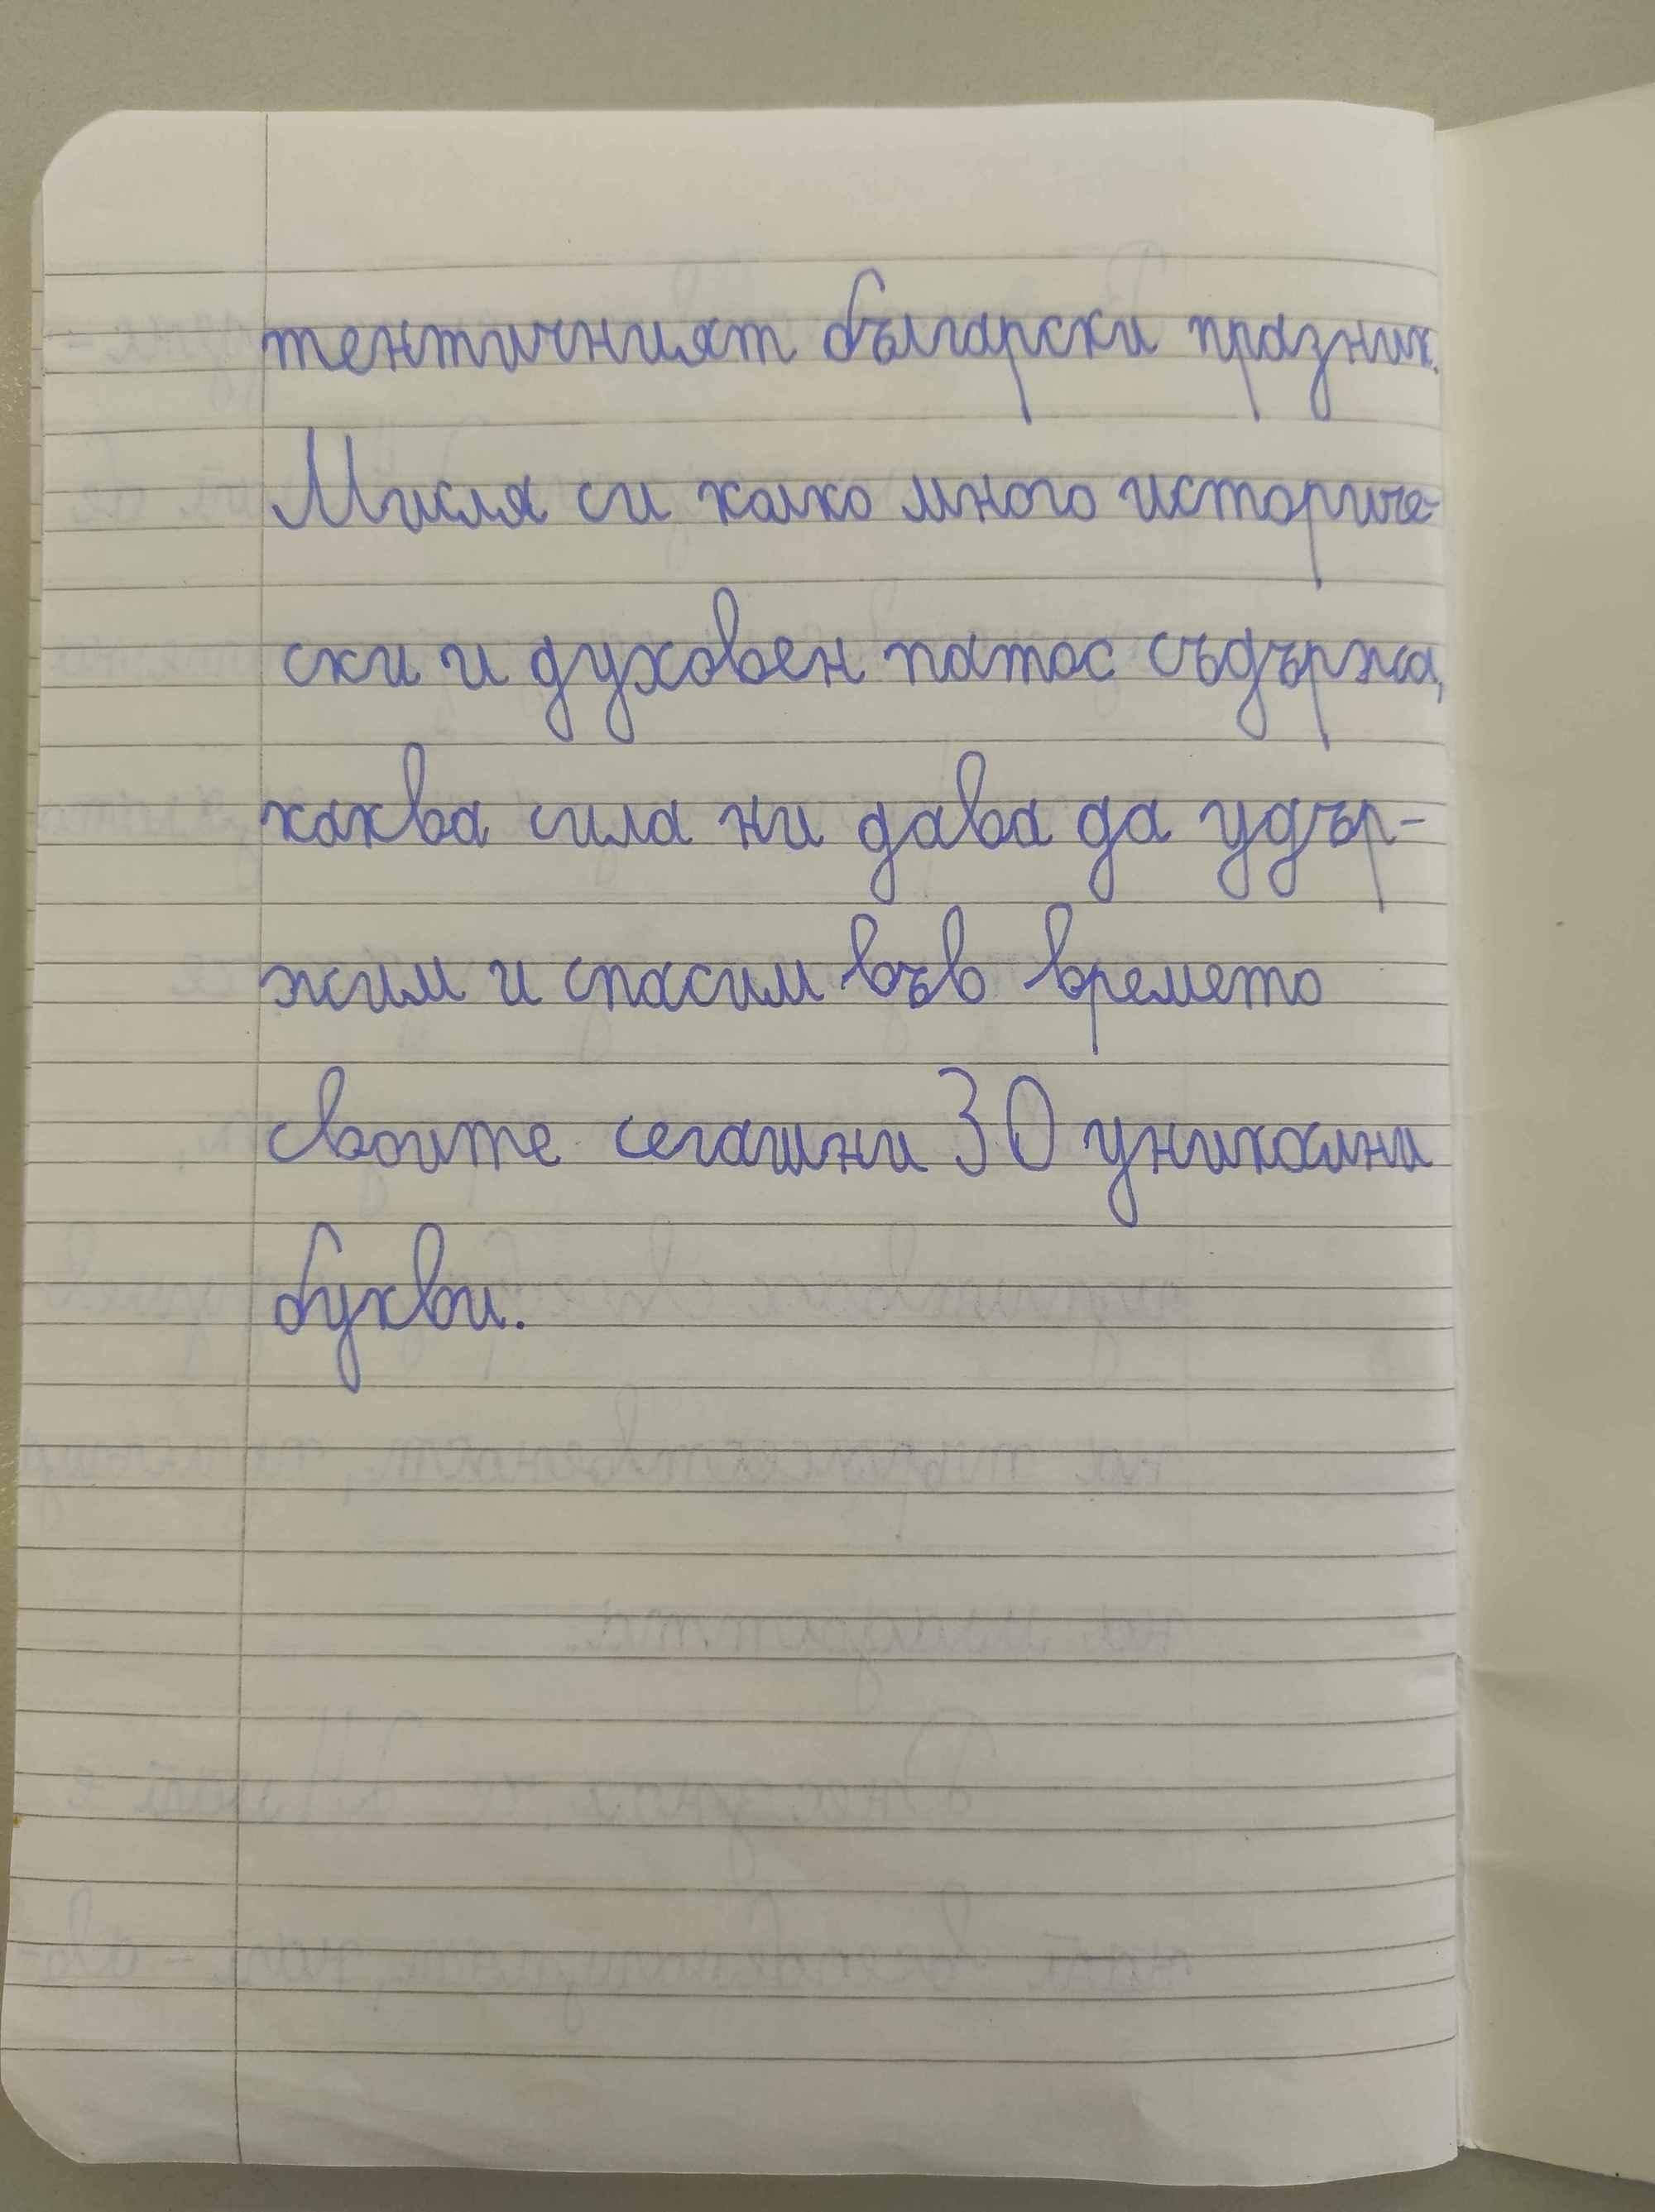 тентичният български празник.
Мисля си колко много историче-
ски и духовен патос съдържа,
каква сила ни дава да удър-
жим и спасим във времето
своите сегашни 30 уникални
букви.